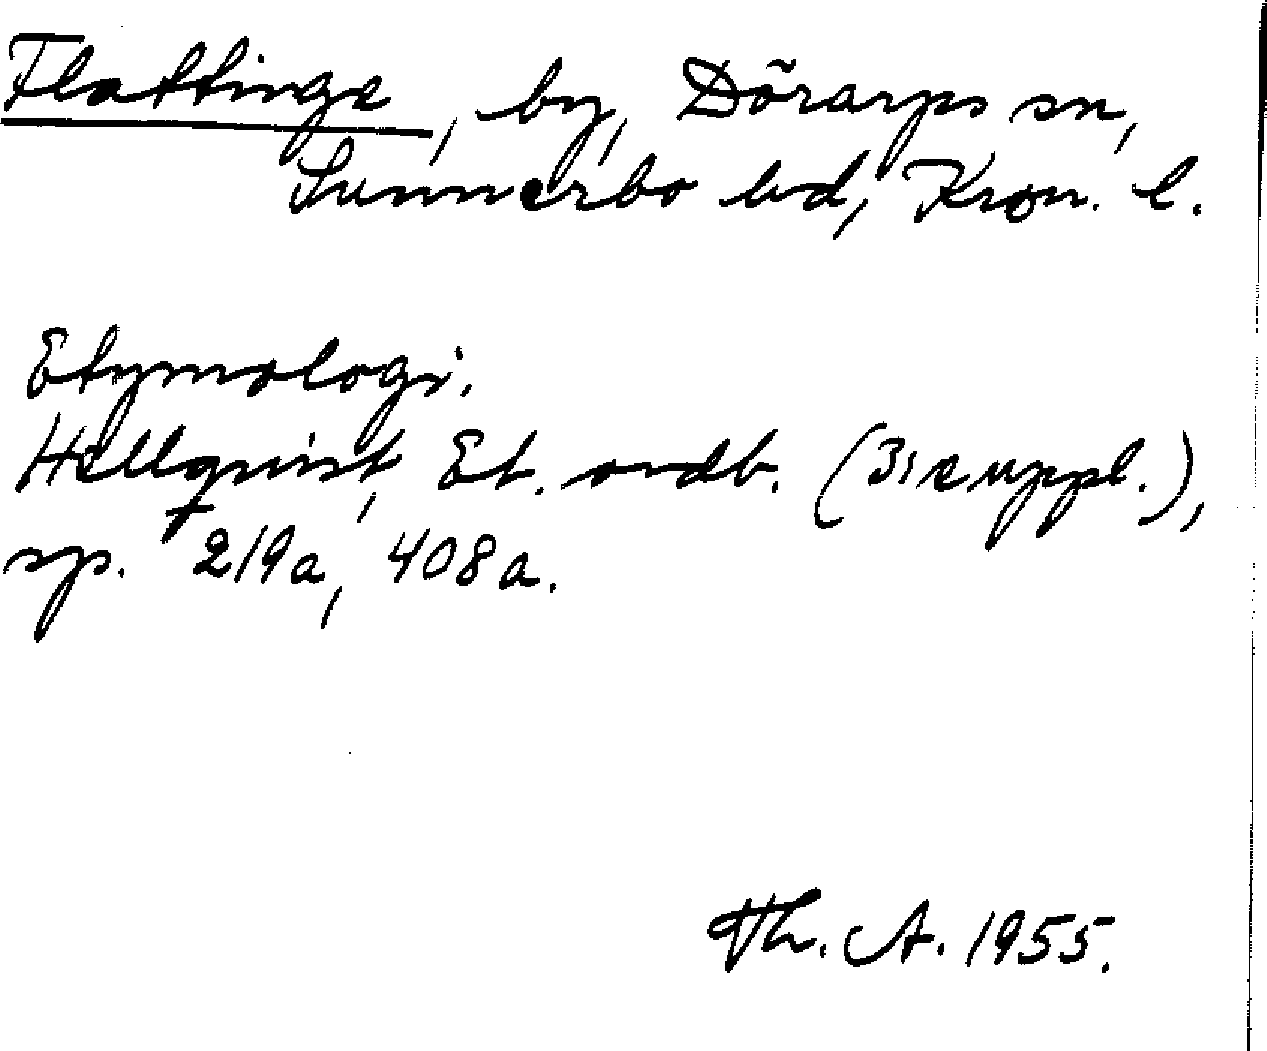 Flattinge, by, Dörarps sn,
Sunnerbo hd, Kron. l.
Etymologi.
Hellquist, Et. ordb. (3:e uppl.),
sp. 219a, 408a.
Th. A. 1955.